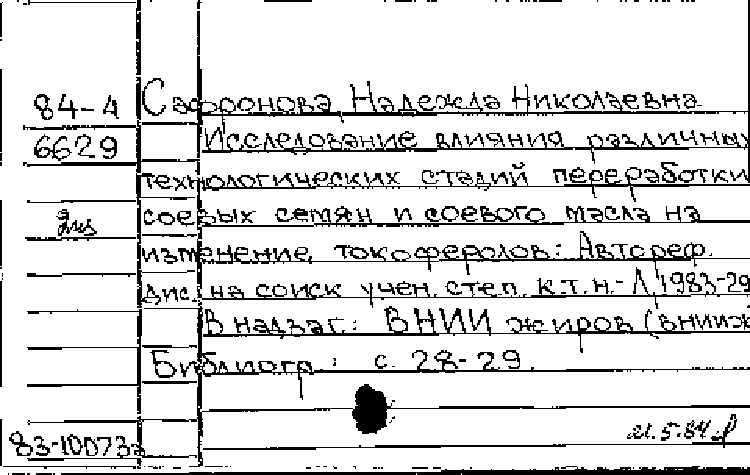 84-4 Сафронова Надежда Николаевна
6629 Исследование влияния различных
технологических стадий переработки
соевых семян и соевого масла на
изменение токоферолов: Автореф.
дис. на соиск учен. степ. к.т.н.- Л, 1983-29
В надзаг.: ВНИИ жиров (ВНИИЖ
Библиогр.: с. 28-29.
21.5.84
83-10073а